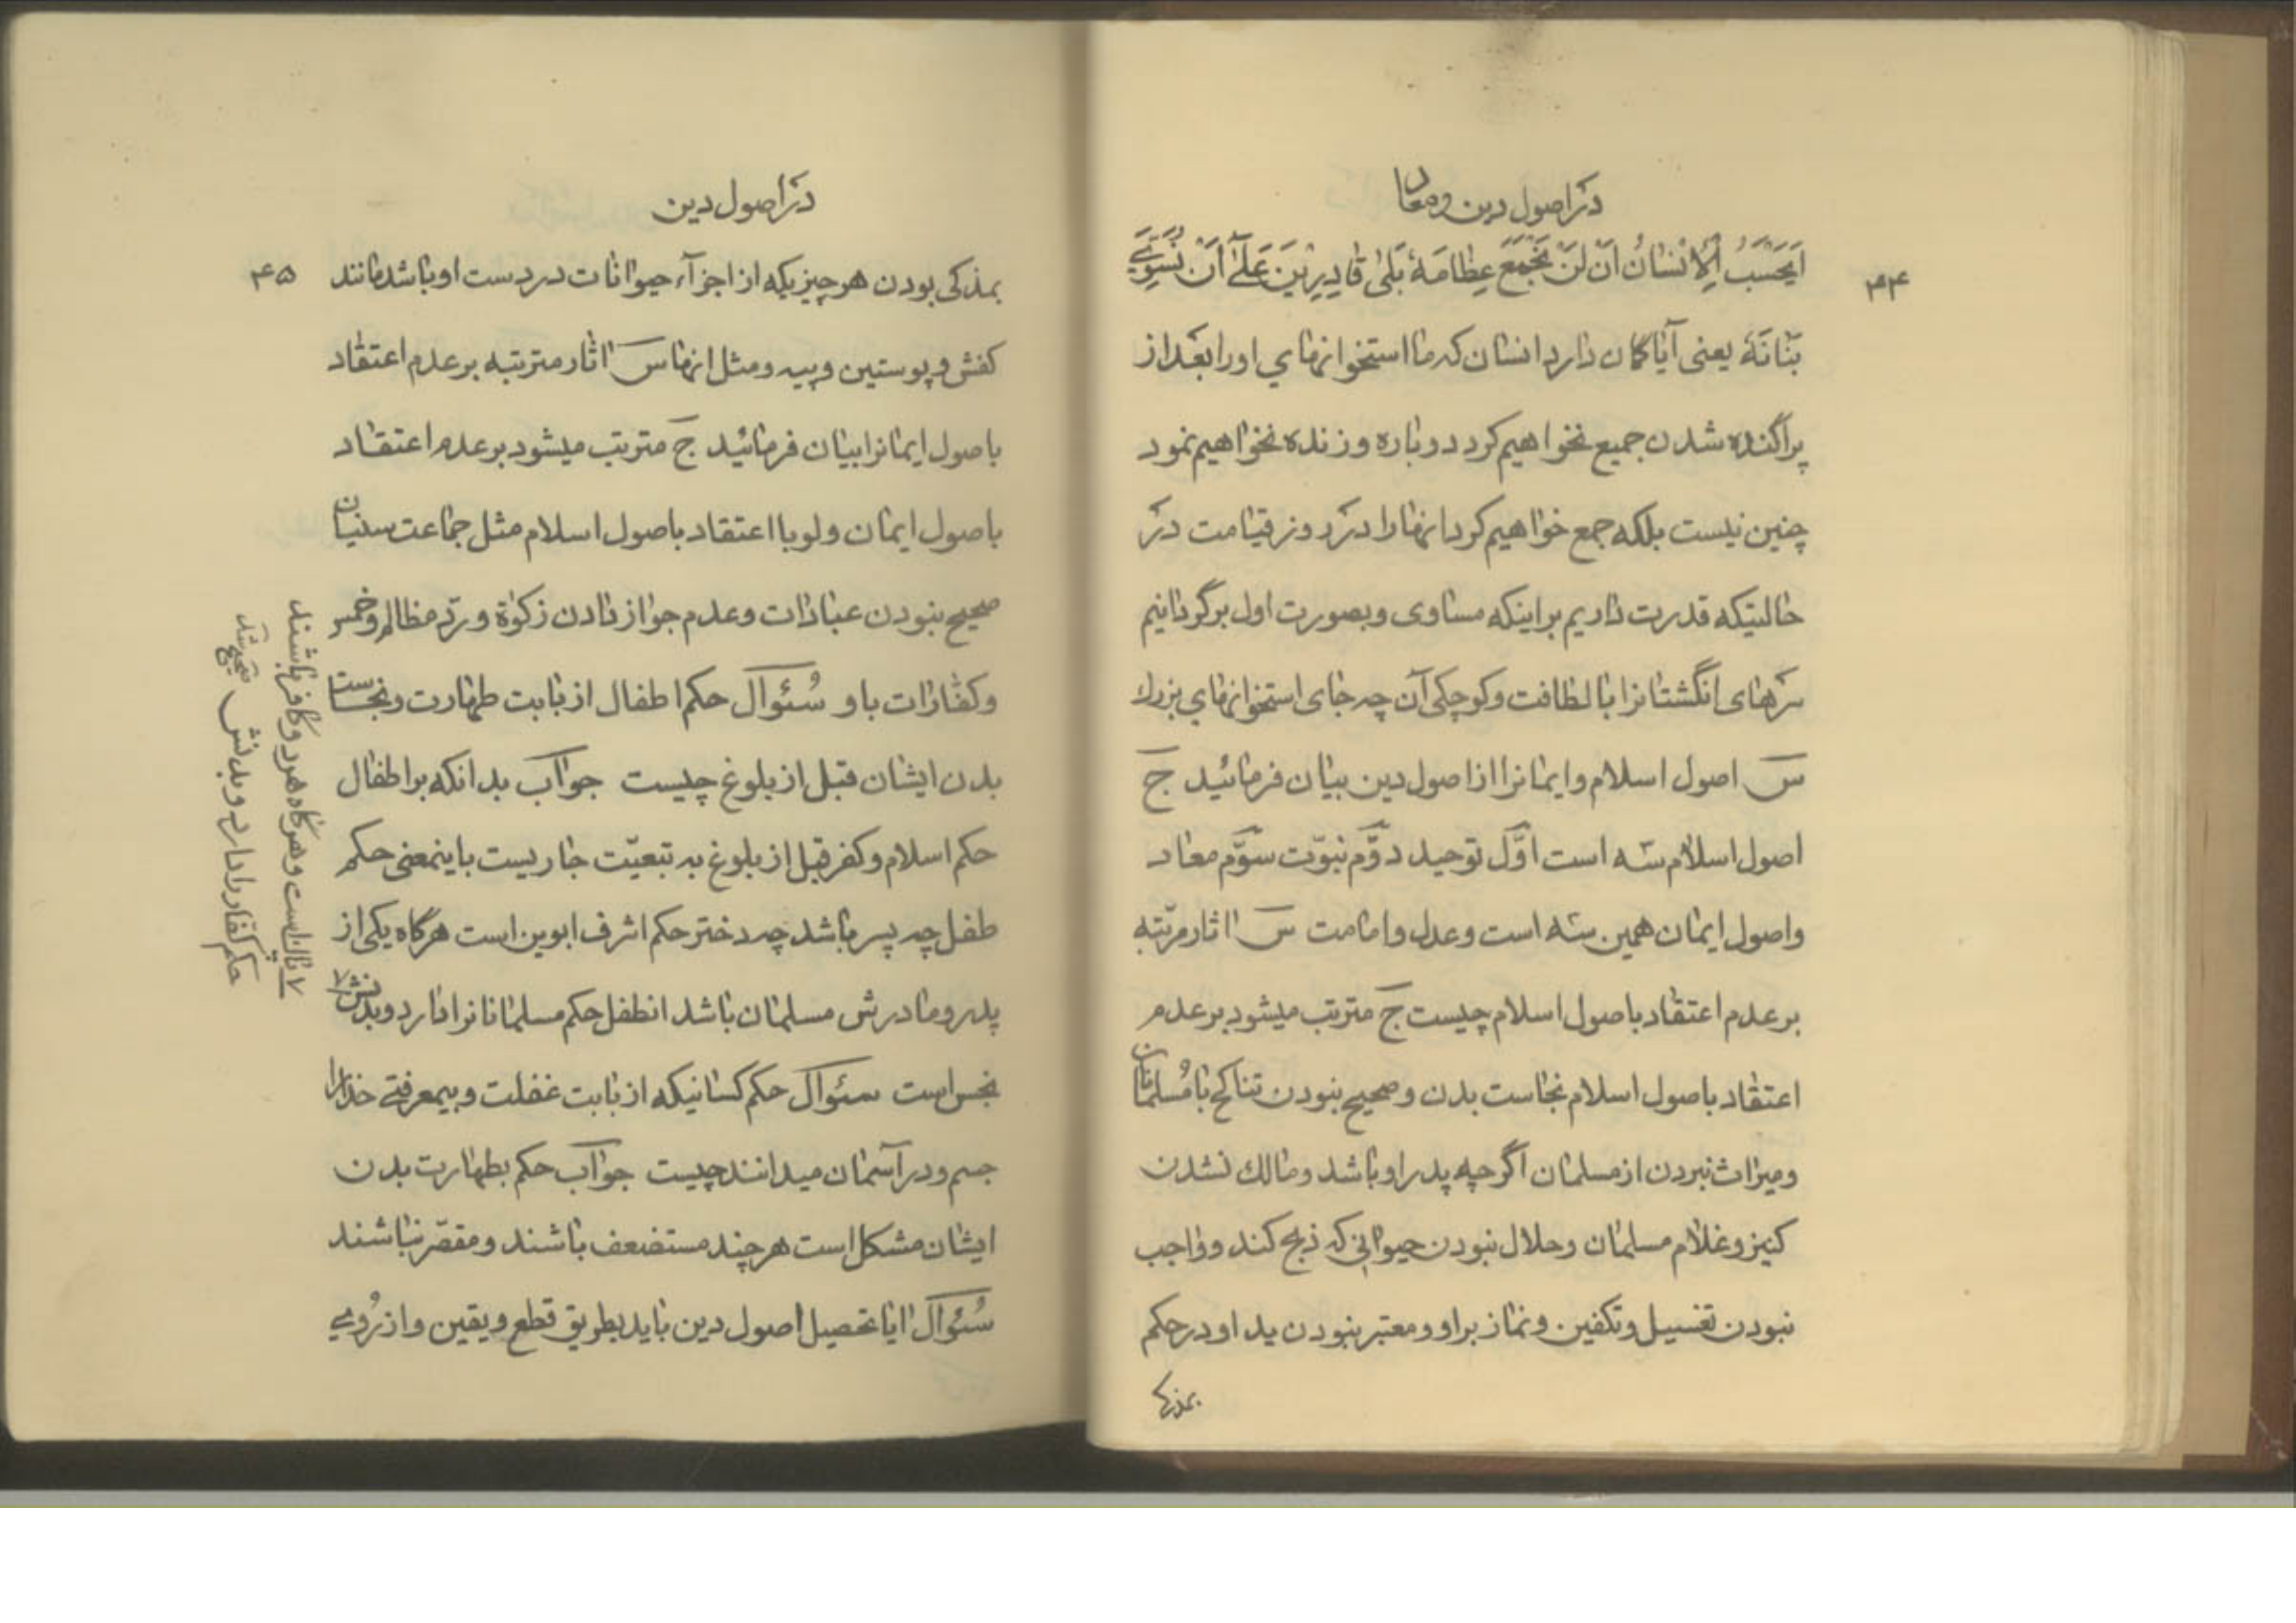 در اصول دین و معاد
۴۴
اَیَحْسَبُ الْاِنْسٰانُ اَنْ لَنْ نَجْمَعَ عِظٰامَهُ بَلیٰ قٰادِرِیْنَ عَلیٰٓ اَنْ نُسَوِّیَ
بَنٰانَهُ یعنی آیا کمان دارد انسان که ما استخوانهای او را بعد از
پراکنده شدن جمیع نخواهیم کرد دوباره و زنده نخواهیم نمود
چنین نیست بلکه جمع خواهیم کرد انها را در روز قیامت در
حالتیکه قدرت داریم بر اینکه مساوی و بصورت اول برگردانیم
سرهای انگشتانرا با لطافت و کوچکی آن چه جای استخوانهای بزرك
س اصول اسلام و ایمانرا از اصول دین بیان فرمائید ج
اصول اسلام سه است اوّل توحید دوّم نبوّت سوّم معاد
و اصول ایمان همین سه است و عدل و امامت س اثار مرتّبه
بر عدم اعتقاد باصول اسلام چیست ج مترتب میشود بر عدم
اعتقاد باصول اسلام نجاست بدن و صحیح نبودن تناکح با مُسلمانان
و میراث نبردن از مسلمان اگر چه پدر او باشد و مالك نشدن
کنیز و غلام مسلمان و حلال نبودن حیوانی که ذبح کند و واجب
نبودن تغسیل و تکفین و نماز بر او و معتبر نبودن ید او در حکم
بمذکی
در اصول دین
۴۵
بمذکی بودن هر چیزیکه از اجزآء حیوانات در دست او باشد مانند
کفش و پوستین و پیه و مثل انها س اثار مترتبه بر عدم اعتقاد
باصول ایمانرا بیان فرمائید ج مترتب میشود بر عدم اعتقاد
باصول ایمان ولو با اعتقاد باصول اسلام مثل جماعت سنیان
صحیح نبودن عبادات و عدم جواز دادن زکوٰة و ردّ مظالم و خمس
و کفّارات باو سُئوال حکم اطفال از بابت طهارت و نجاست
بدن ایشان قبل از بلوغ چیست جواب بدانکه بر اطفال
حکم اسلام و کفر قبل از بلوغ به تبعیّت جاریست باینمعنی حکم
طفل چه پسر باشد چه دختر حکم اشرف ابوین است هرگاه یکی از
پدر و مادرش مسلمان باشد انطفل حکم مسلمانانرا دارد و بدنش ۷
نجس است سئوال حکم کسانیکه از بابت غفلت و بیمعرفتی خدا را
جسم و در آسمان میدانند چیست جوٰاب حکم بطهارت بدن
ایشان مشکل است هر چند مستضعف باشند و مقصّر نباشند
سُئوال ایا تحصیل اصول دین باید بطریق قطع و یقین و از رُوی
۷ پاك است و هرگاه هر دو کافر باشند
حکم کفار را دارد و بدنش صحیح شد